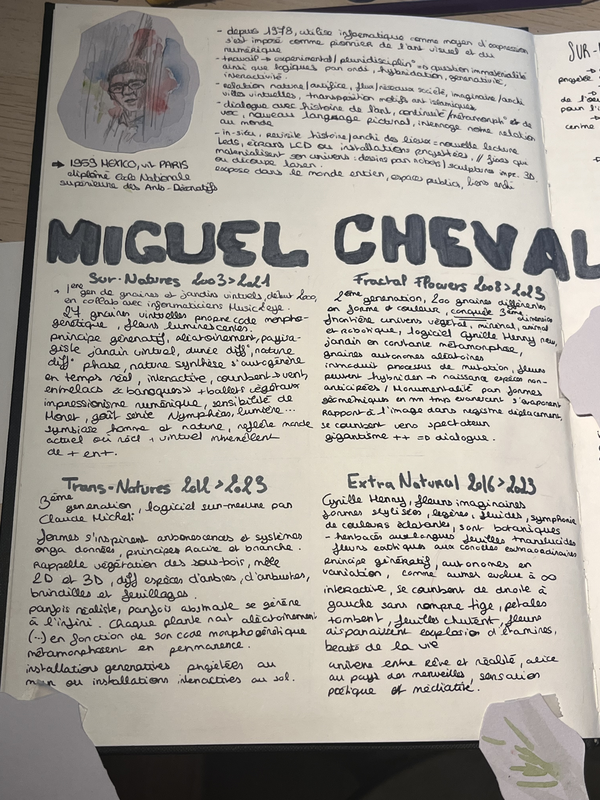 - depuis 1978, utilise informatique comme moyen d'expression
s'est imposé comme pionnier de l'art visuel et du
numérique
- travail → experimental/pluridisciplin → question immatérialité
ainsi que logiques par ordi, hybridation, générativité,
interactivité.
- relation nature/artifice, flux/réseaux société, imaginaire/archi
villes virtuelles, transposition motifs art islamiques
- dialogue avec histoire de l'art, continuité/métamorph° et de
voc, nouveau language pictural, interroge notre relation
au monde
- in-situ, revisite histoire/archi des lieux = nouvelle lecture
Leds, écrans LCD ou installations projetées, //
matérialisent son univers : dessins par robots/sculptures impr. 3D
ou découpe laser.
expose dans le monde entier, espaces publics, lieux archi
→ 1959 MEXICO, vit PARIS
diplômé Ecole Nationale
supérieure des Arts-Décoratifs
MIGUEL CHEVAL
SUR-
Sur-Natures 2003>2021
→ 1ère gen de graines et jardins virtuels, début 2000,
en collab avec informaticiens Music2eye.
27 graines virtuelles propre code morpho-
génétique, fleurs luminescentes.
principe génératif, aléatoirement, paysa-
giste jardin virtuel, durée diff, nature
diff phase, nature synthèse s'autogénère
en temps réel, interactive, courbent → vent,
entrelacs & baroques → ballet végétaux
impressionisme numérique, sensibilité de
Monet, goût série Nymphéas, lumière...
symbiose homme et nature, reflète monde
actuel où réel + virtuel mremêlent
de + en +.
Fractal Flowers 2008>2023
2ème génération, 200 graines différentes
en forme & couleur, conquête 3ème dimension
frontière univers végétal, minéral, animal
et robotique, logiciel Cyrille Henry new,
jardin en constante métamorphose,
graines autonomes aléatoires
immeduit processus de mutation, fleurs
peuvent hybrider → naissance espèces non-
anticipées / Monumentalité par formes
géométriques en mm tmps évanescent s'évaporent
Rapport à l'image dans registre déplacement,
se courbent vers spectateur
gigantisme ++ => dialogue.
Trans-Natures 2012>2023
3ème génération, logiciel sur-mesure par
Claude Micheli
formes s'inspirent arborescences et systèmes
orga données, principes Racine et branche.
Rappelle végétation des sous-bois, mêle
2D et 3D, diff espèces d'arbres, d'arbustes,
brindilles et feuillages.
parfois réaliste, parfois abstraite se génère
à l'infini. Chaque plante nait aléatoirement
(...) en fonction de son code morphogénétique
métamorphosent en permanence.
installations generatives projetées au
mur ou installations interactives au sol.
Extra Natural 2016>2023
Cyrille Henry, fleurs imaginaires
formes stylisées, légères, fluides, symphonie
de couleurs éclatantes, sont botaniques
- herbacés aux longues feuilles translucides
fleurs exotiques aux corolles extraordinaires
principe génératif, autonomes en
variation, comme autres evolue à ∞
interactive, se courbent de droite à
gauche sans rompre tige, pétales
tombent, feuilles chutent, fleurs
disparaissent explosion d'étamines,
beauté de la vie
univers entre rêve et réalité, alice
au pays des merveilles, sensation
poétique et médiatité.